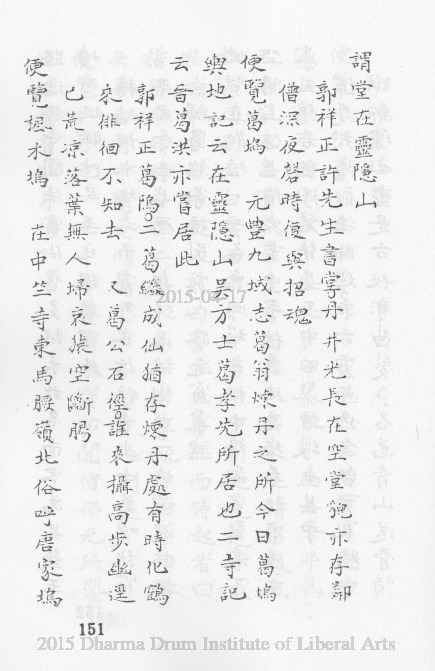 謂堂在靈隱山
郭祥正許先生書掌丹井光長在空堂貌亦存鄰
僧深夜磬時便與招魂
便覽葛塢 元豐九域志葛翁煉丹之所今日葛塢
輿地記云在靈隱山吳方士葛孝先所居也二寺記
云晉葛洪亦嘗居此
郭祥正葛隖二葛繼成仙猶存煉丹處有時化鶴
來徘徊不知去 又葛公石徑誰來攝高步幽逕
已荒凉落葉無人埽哀猿空斷腸
便覽楓木塢 在中竺寺東馬腰嶺北俗呼唐家塢
151
2015-07-17
2015 Dharma Drum Institute of Liberal Arts